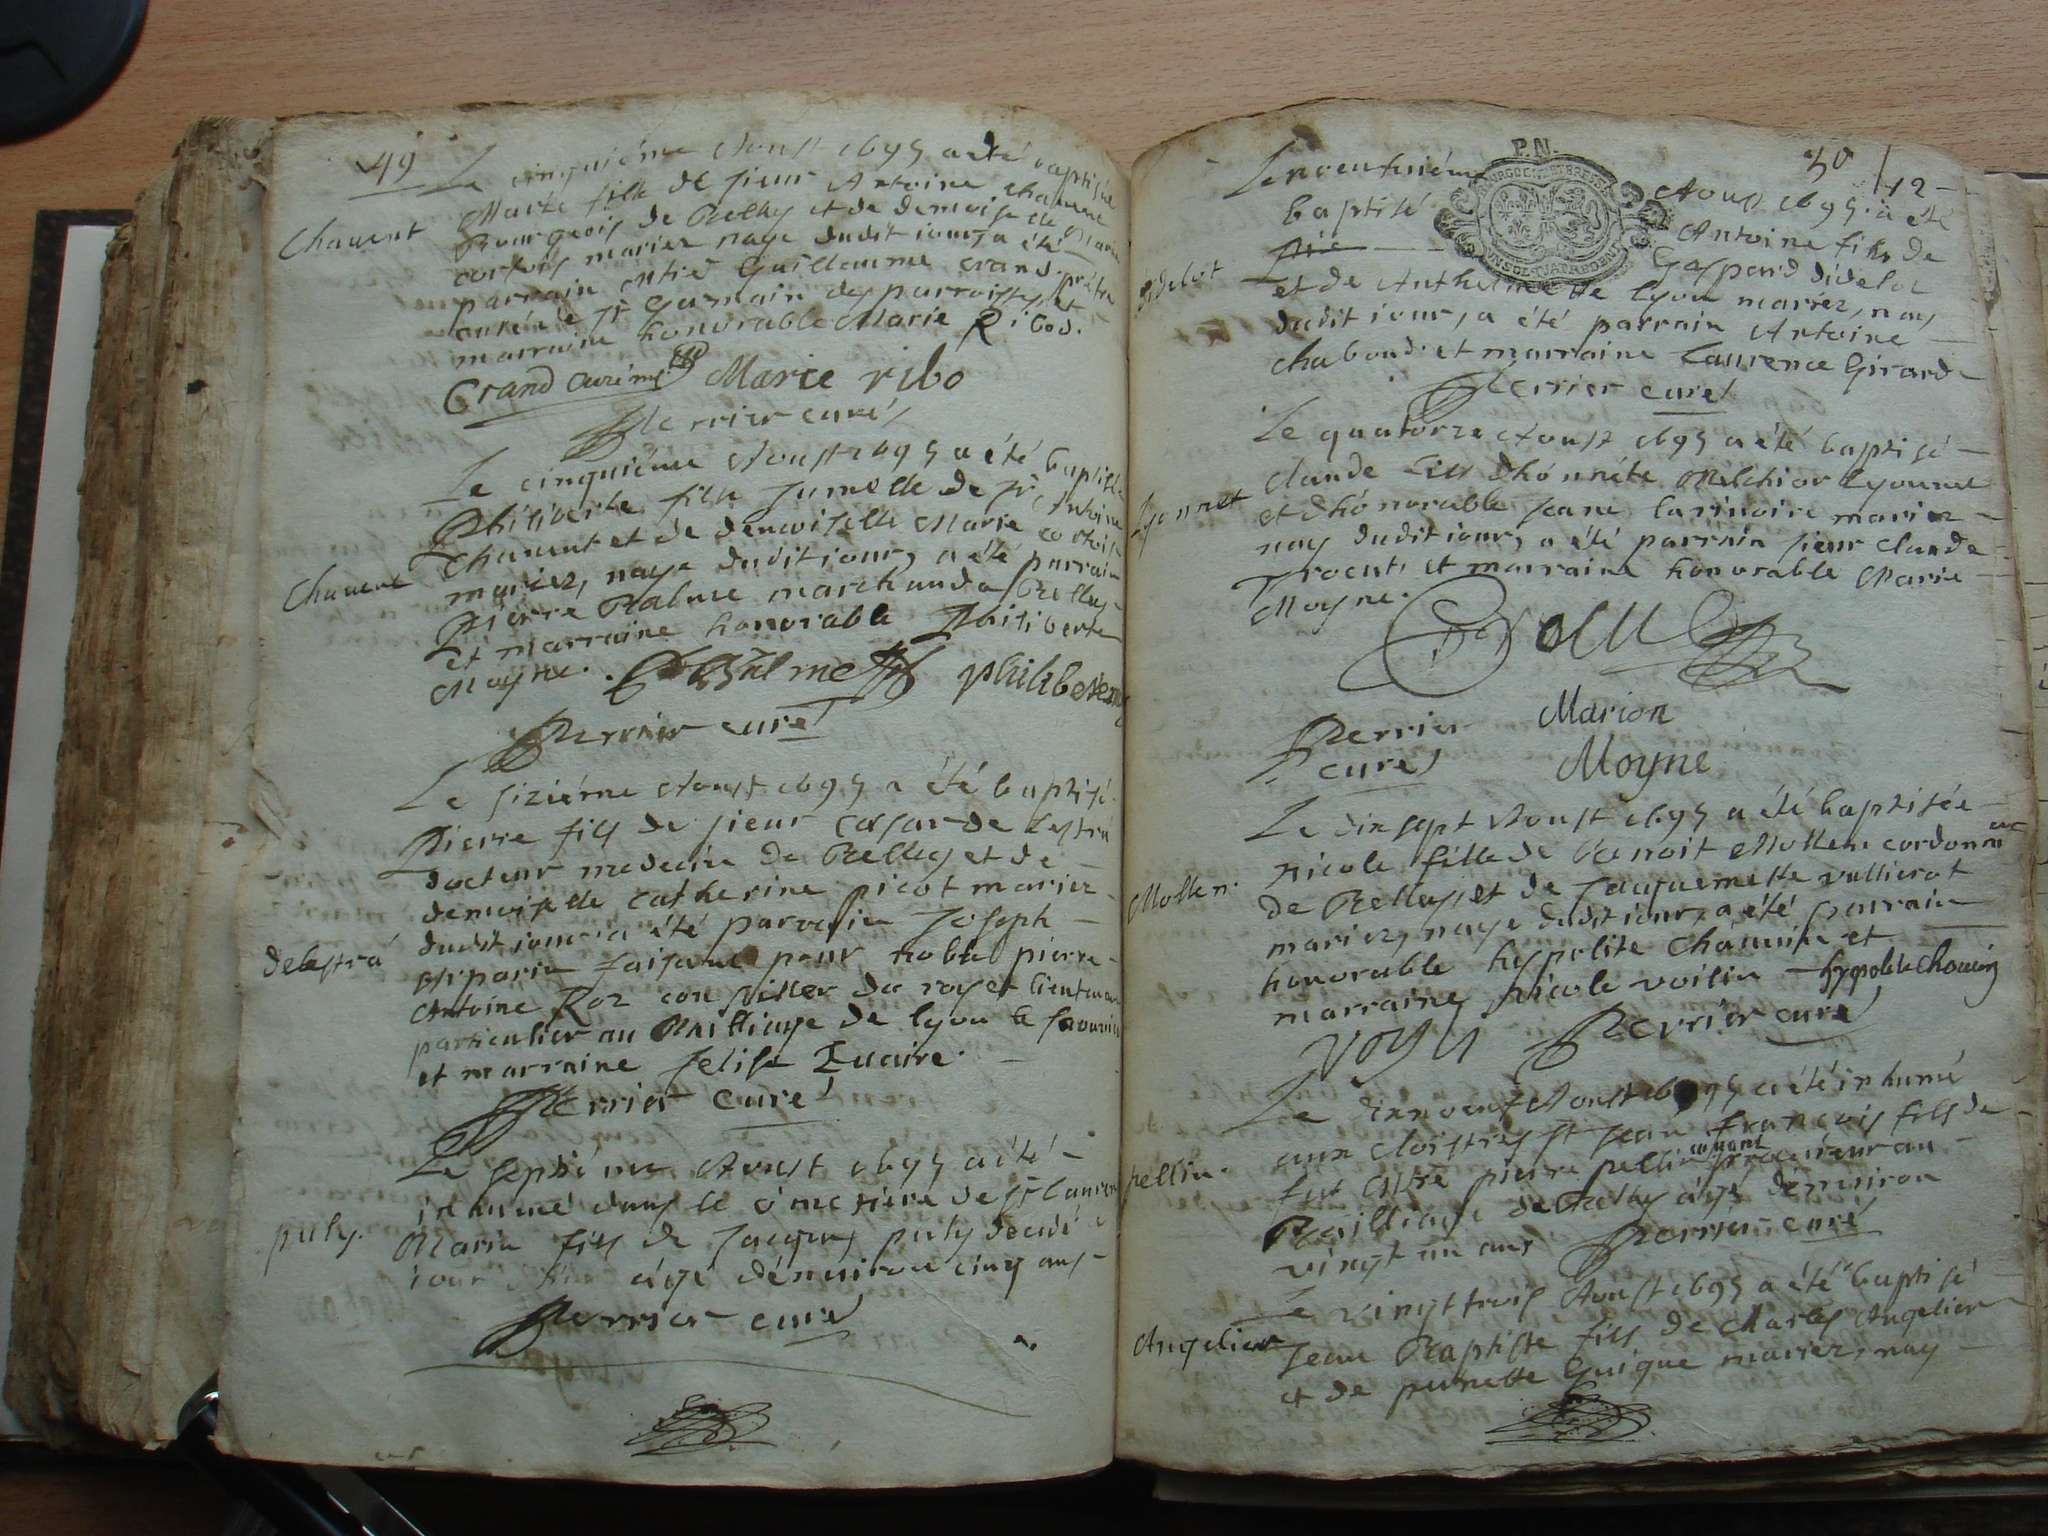 49
Le cinquiéme Aoust 1695 a été baptisée
Marie fille de sieur Antoine Chauent
Chauent
Bourgeois de Belley et de demoiselle Marie
cortois mariez naye dudit iour, a été
parrain Guillaume Crand prétre
curé de st Germain des parroisses et
marraine honorable Marie Ribod.
Crand curé Marie ribo
Perrier curé
Le cinquiéme Aoust 1695 a été baptisée
Philiberte fille Jumelle de sr Antoine
Chauent et de demoiselle Marie cortois
Chauent
mariez, naye dudit iour, a été parrain
Pierre Balme marchand a Belley
et marraine honorable Philiberte
Moyne. Balme philiberte
Perrier curé
Le siziéme Aoust 1695 a été baptisé
Pierre fils de sieur Cesar de Lestra
docteur medecin de Belley et de
demoiselle Catherine picot mariez
delestra
dudit iour a été parrain Joseph
faisant pour noble pierre
Antoine Roz conseiller du roy et lieutenant
particulier au Bailliage de lyon le
et marraine felise Euaire.
Perrier curé
Le septiéme Aoust 1695 a été
inhumé dans le cimetiére de st Laurent
puty.
Marin fils de Jacques puty decedé
iour âgé d'enuiron cinq ans
Perrier curé
50
12
P.N.
Le neufuiéme Aoust 1695 a été
baptisé Antoine fils de
Gaspard didelot
didelot
et de Anthelmette lyon mariez, nay
dudit iour, a été parrain Antoine
chaboud et marraine Laurence Girard
Perrier curé
Le quatorze Aoust 1695 a été baptisé
Claude fils d'honnéte Melchior lyonnet
lyonnet
et d'honorable Jeane larinoire mariez
nay dudit iour, a été parrain sieur Claude
et marraine honorable Marie
Moyne.
Perrier Marion
curé Moyne
Le dixsept Aoust 1695 a été baptisée
nicole fille de Benoit Mollen cordonnier
Mollen.
de Belley et de Jaquemette vullierot
mariez, naye dudit iour, a été parrain
honorable hypolite Chauuin et
marraine nicole voilin hypolite Chouin
Perrier curé
Le dixneuf Aoust 1695 a été inhumé
aux cloistres st Jean françois fils de
pellin.
fut Mtre pierre pellin procureur au
Bailliage de Belley âgé d'enuiron
vingt un ans Perrier curé
Le vingt trois Aoust 1695 a été baptisé
Angelier
Jean Baptiste fils de Charles Angelier
et de pernette Guigue mariez, nay